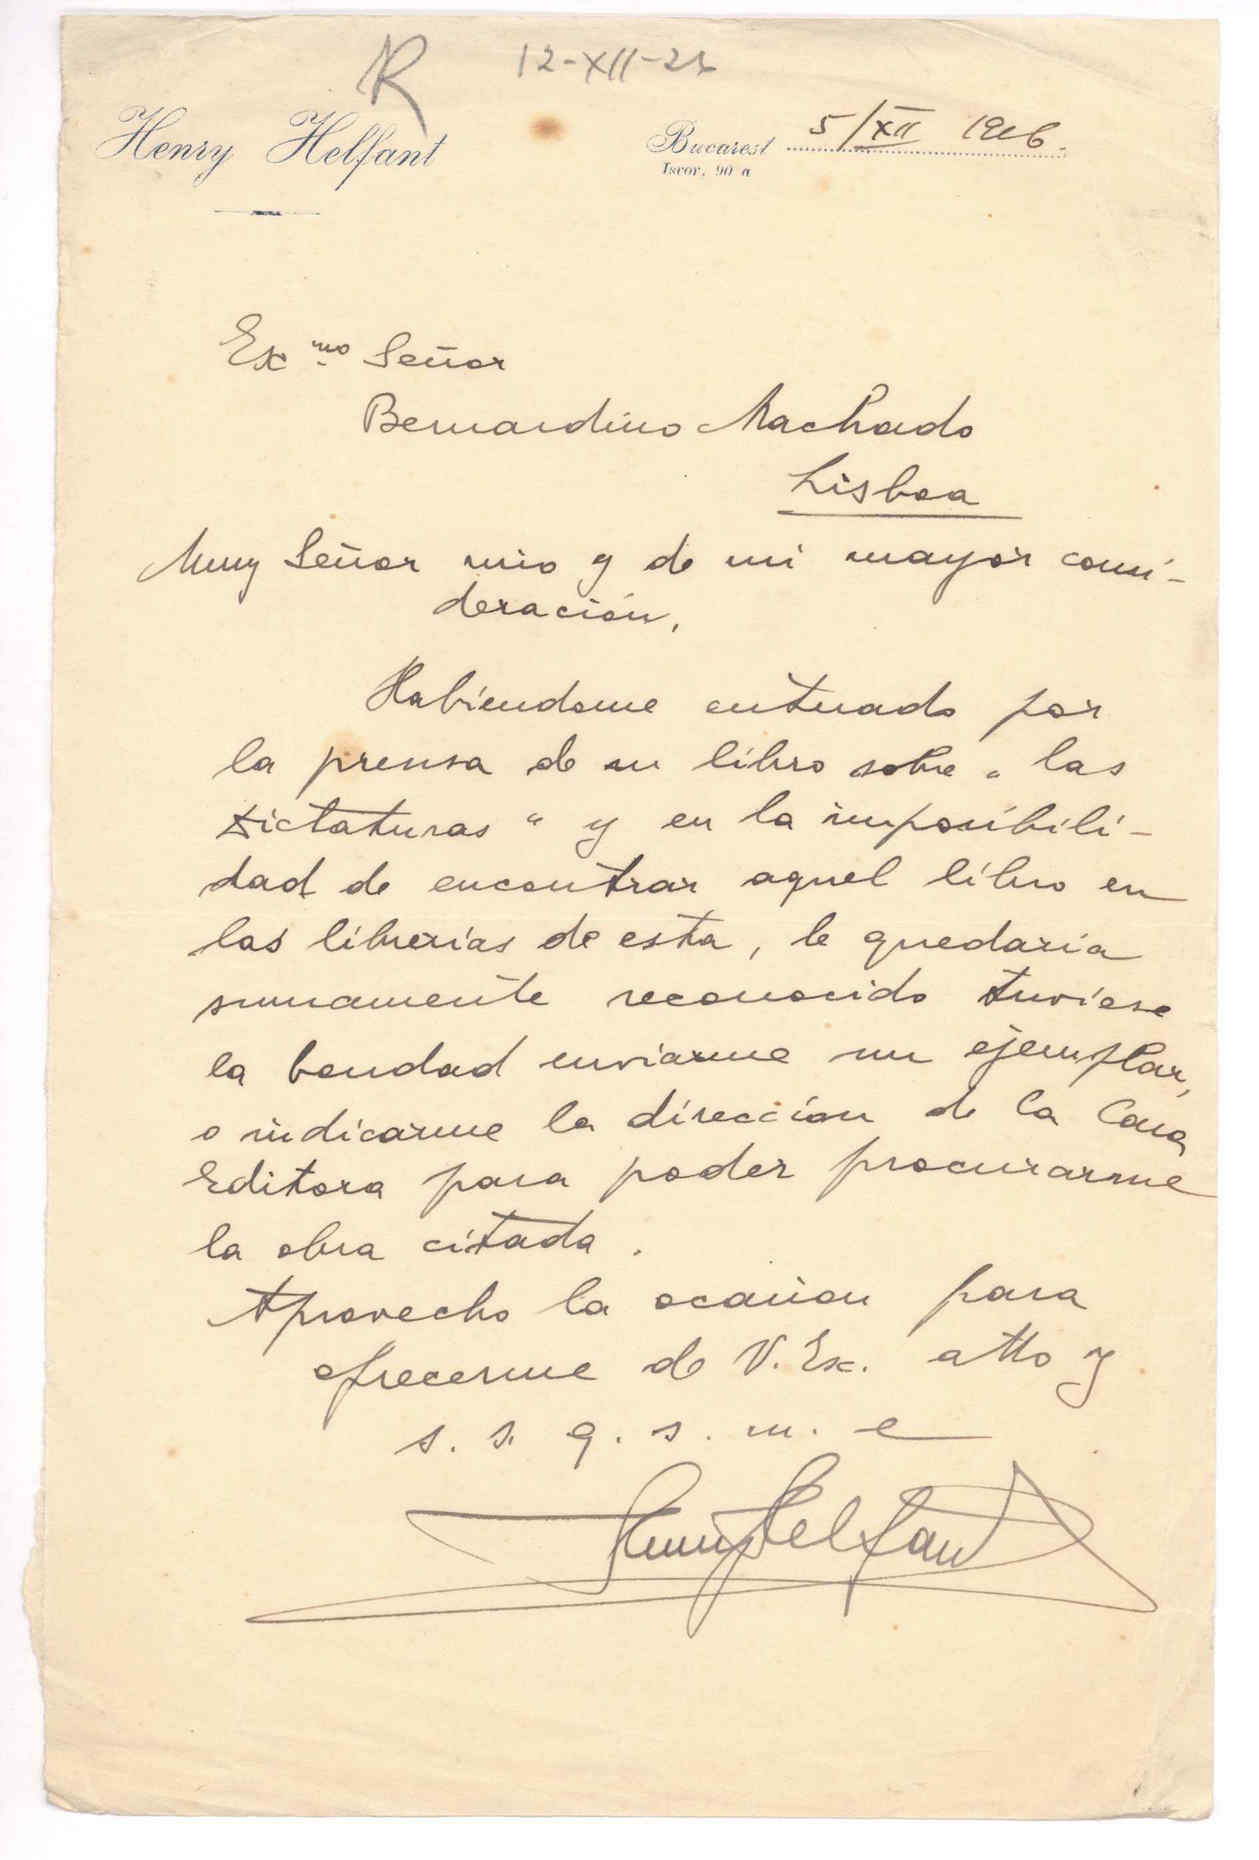 R 12-XII-2
Henry Helfant
Bucarest 5/XII 1926.
Iscor, 90 a
Ex.mo Señor
Bernardino Machado
Lisboa
Muy Señor mio y de mi mayor consi-
deración,
Habiendome enterado por
la prensa de su libro sobre „las
dictaturas“ y en la imposibili-
dad de encontrar aquel libro en
las librerias de esta, le quedaria
sumamente reconocido tuviese
la bondad enviarme un ejemplar,
o indicarme la direccion de la Casa
Editora para poder procurarme
la obra citada.
Aprovecho la ocasion para
ofrecerme de V. Ex. atto y
s. s. q. s. m. e
Henry Helfant